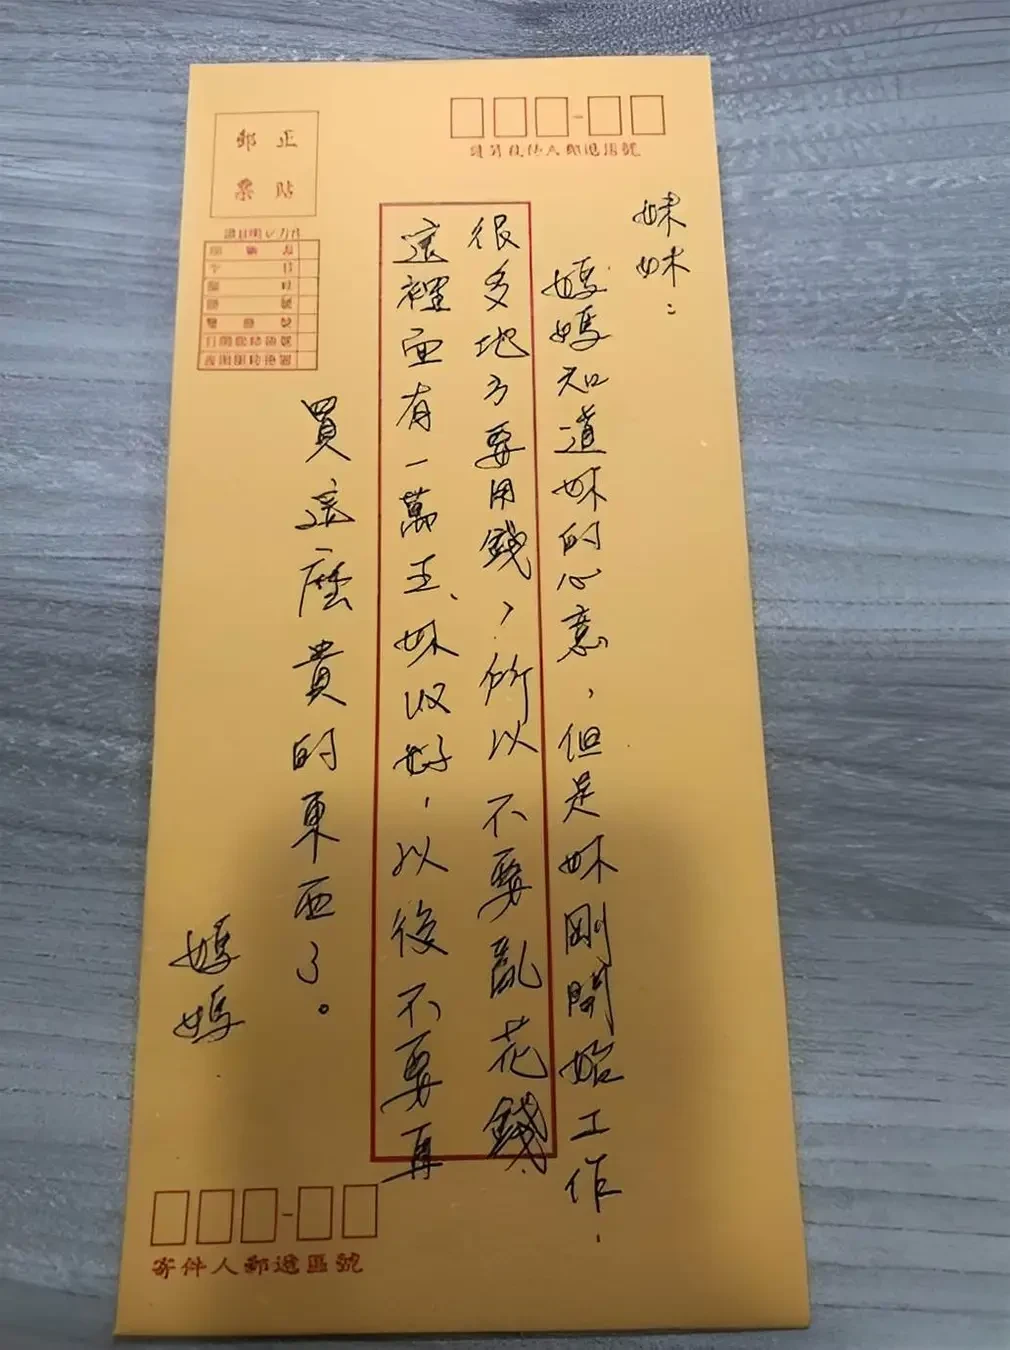 妹妹:
媽媽知道妹的心意,但是妹剛開始工作.
很多地方要用錢,所以不要亂花錢
這裡面有一萬王、妹收好,以後不要再
買這麽貴的東西了。
媽媽
正貼
郵票
寄件人郵遞區號